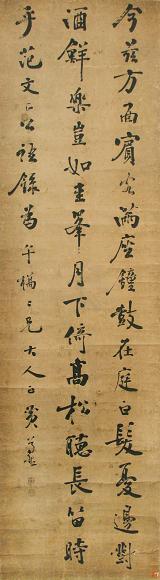 今茲方面賓客滿座鐘鼓在庭白髮憂邊對
酒鮮樂豈如圭峯月下倚高松聽長笛時
乎范文正公語錄為午橋兄大人正黃